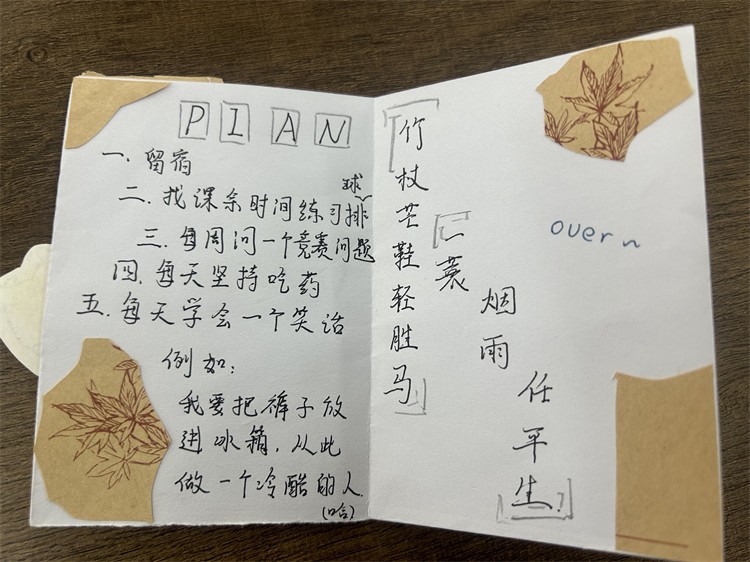 PIAN
一. 留宿
二. 找课余时间练习排球
三. 每周问一个竞赛问题
四. 每天坚持吃药
五. 每天学会一个笑话
例如:
我要把裤子放
进冰箱, 从此
做一个冷酷的人.
(哈)
竹杖芒鞋轻胜马
一蓑
烟雨
任平生?
over~